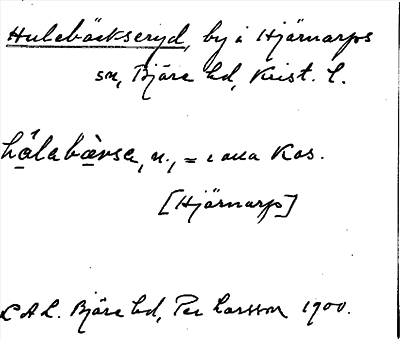 Hulebäckseryd, by i Hjärnarps
sn, Bjäre hd, Krist. l.
hålabàrsa, n., =
[Hjärnarp]
L A L. Bjäre hd, Per Larsson 1900.